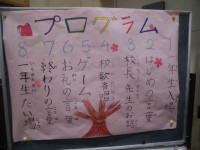 プログラム
1 一年生入場
2 はじめの言葉
3 校長先生のお話
4 校歌斉唱
5 ゲーム
6 お礼の言葉
7 終わりの言葉
8 一年生たい場